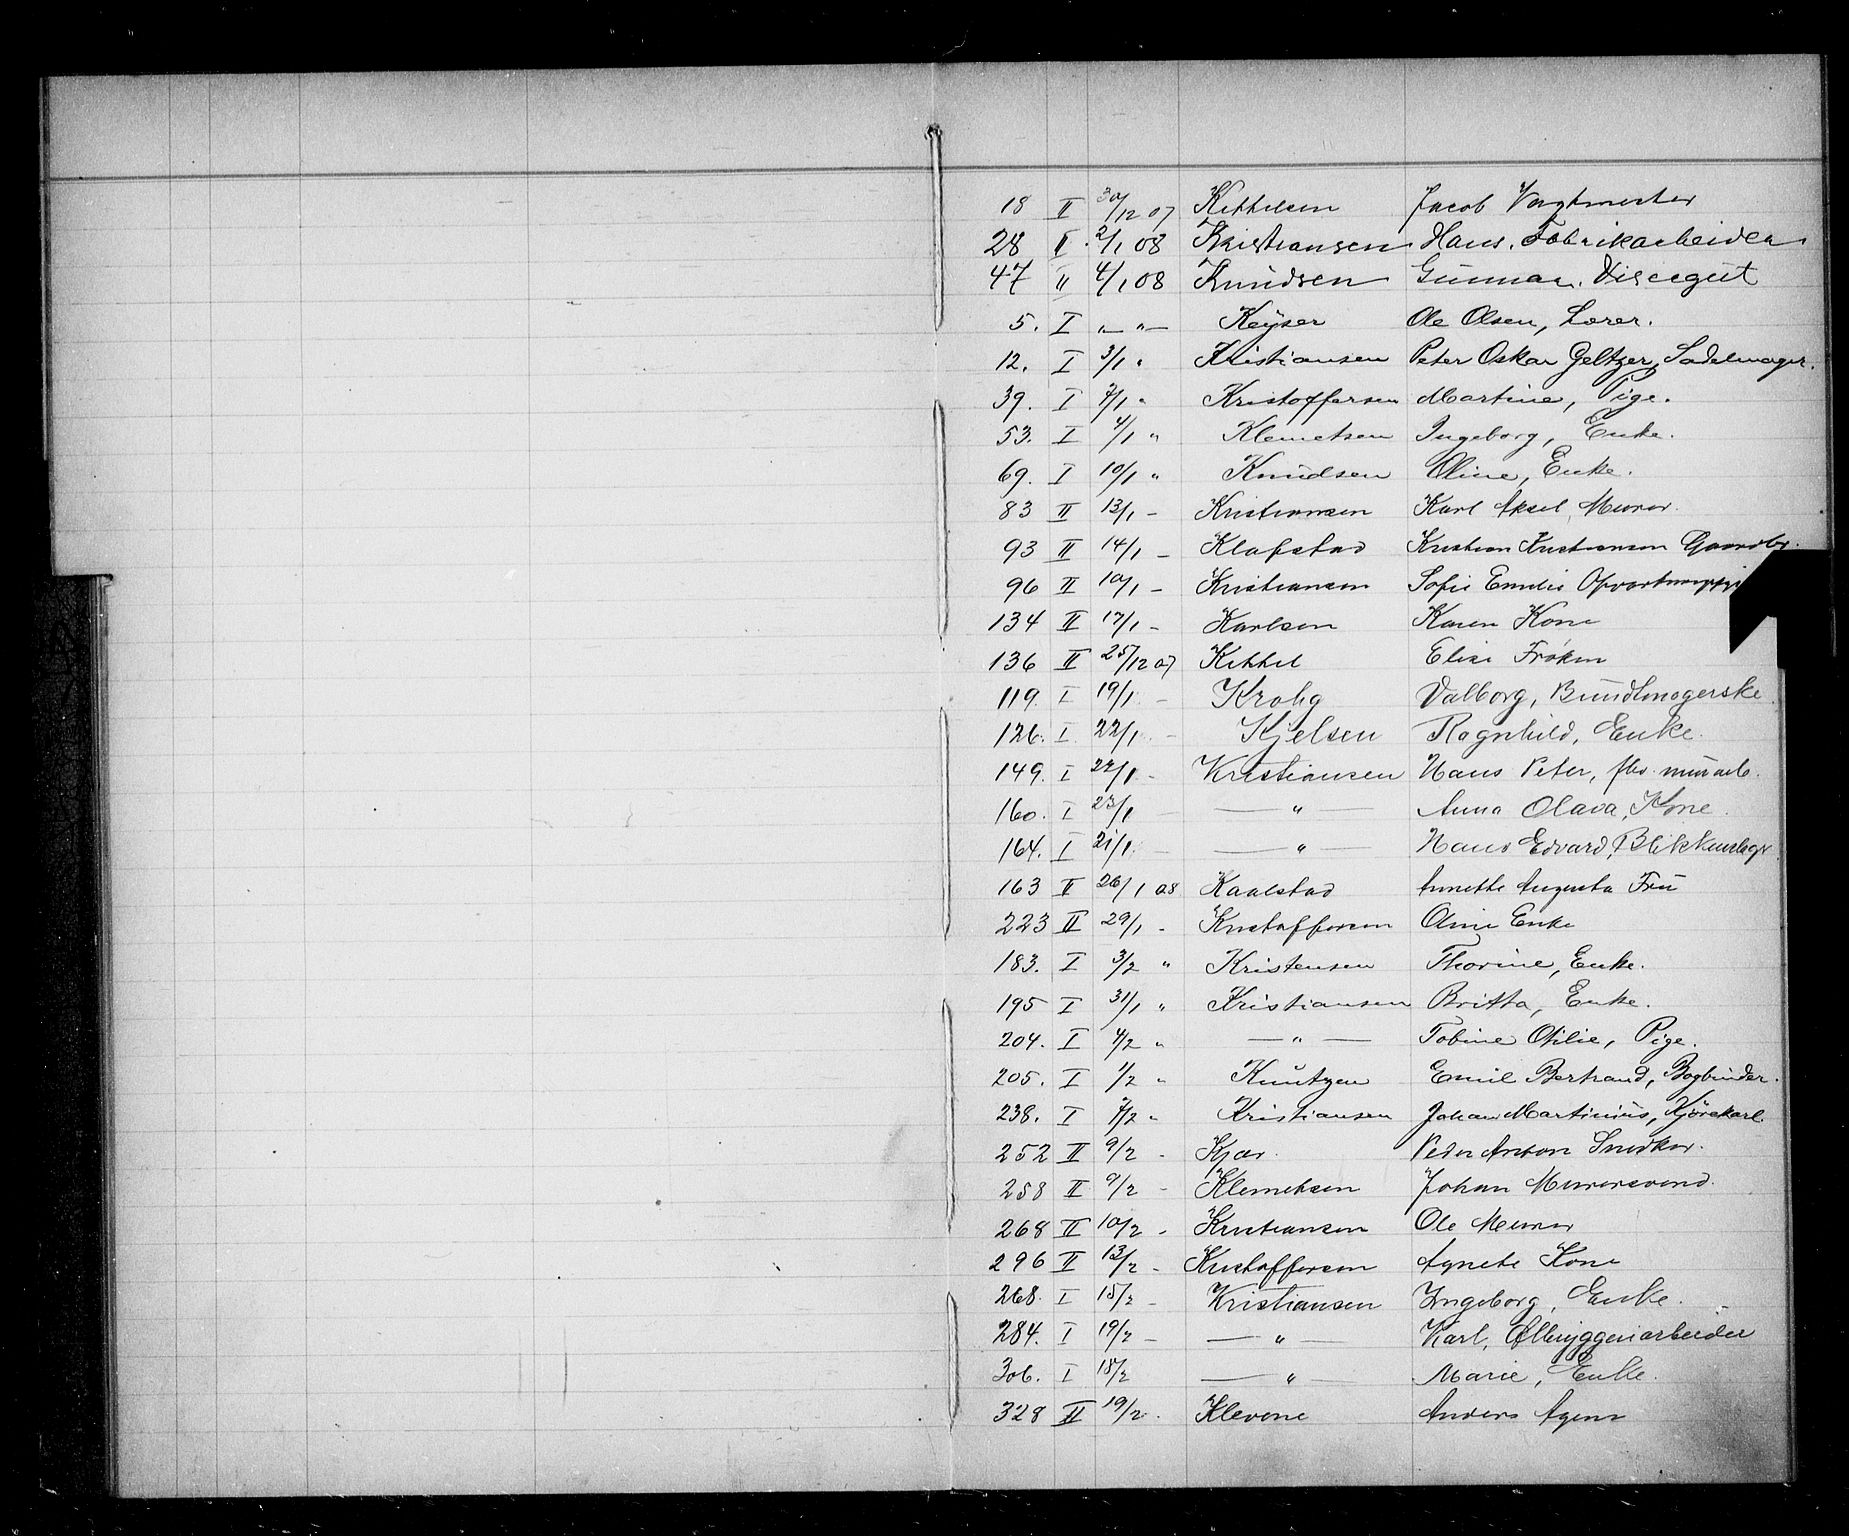 18 II 30/12 07 Kittelsen Jacob Vagtmester
28 I 2/1 08 Kristiansen Hans, Fabrikarbeider
47 II 4/1 08 Knudsen Gunnar, Visergut
5. I „ „ Keyser Ole Olsen, Lærer.
12. I 3/1 „ Kristiansen Peter Oskar Geltzer, Sadelmager.
39. I 7/1 „ Kristoffersen Martine, Pige.
53. I 4/1 „ Klemetsen Ingeborg, Enke.
69. I 10/1 „ Knudsen Oline, Enke.
83 II 13/1 – Kristiansen Karl Aksel, Murer.
93 II 14/1 – Klafstad Kristian Kristiansen Gaardbr.
96 II 10/1 – Kristiansen Sofie Emilie
134 II 17/1 – Karlsen Karen Kone
136 II 25/12 07 Kittel Elise Frøken
119. I 19/1 – Krohg Valborg, Bundtmagerske
126. I 22/1 – Kjelsen Ragnhild, Enke.
149. I 22/1 – Kristiansen Hans Peter, fhv. murarb.
160. I 23/1 – — „ — Anna Olava, Kone.
164. I 21/1 – — „ — Hans Edvard, Blikkenslagr
163 II 26/1 08 Kaalstad Annette Augusta Fru
223 II 29/1 – Kristoffersen Oline Enke
183. I 3/2 „ Kristensen Thorine, Enke.
195 I 31/1 „ Kristiansen Britta, Enke.
204. I 4/2 „ — „ — Tobine Otilie, Pige.
205. I 1/2 „ Knutzen Emil Bertrand, Bogbinder.
238. I 7/2 „ Kristiansen Johan Martinius, Kjørekarl.
252 II 9/2 – Kjær. Peder Anton Snedker.
258 II 9/2 – Klemetsen Johan Murersvend.
268 II 10/2 – Kristiansen Ole Murer
296 II 13/2 – Kristoffersen Agnete Kone
268. I 15/2 – Kristiansen Ingeborg, Enke.
284. I 19/2 – — „ — Karl, Ølbryggeriarbeider
306. I 18/2 — „ — Marie, Enke.
328 II 19/2 – Klevene Anders Agent